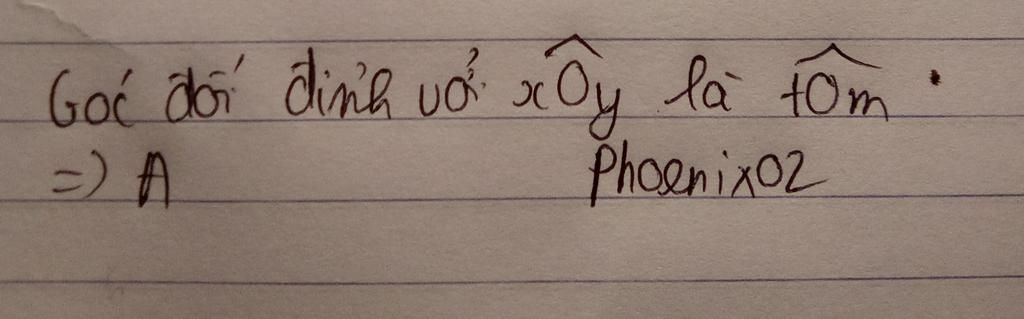 Góc đối đỉnh với xÔy là tÔm.
=> A
Phoenix02